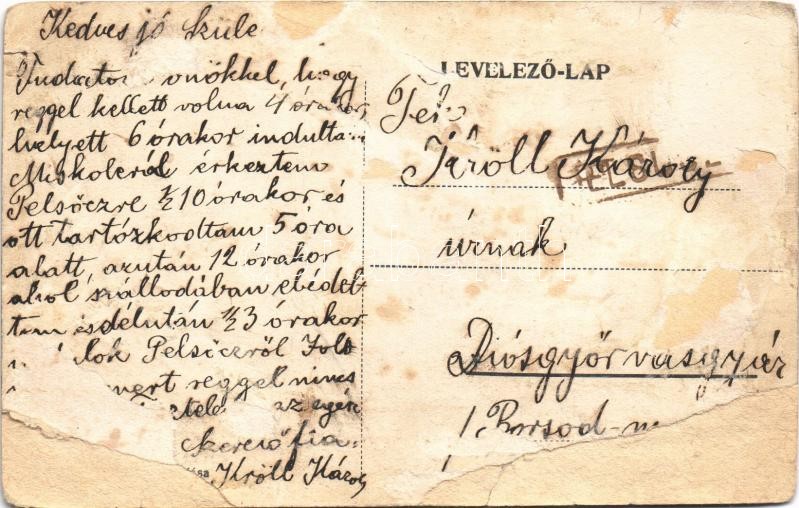 Kedves jó szüle
Tudato onökkel, hogy
reggel kellett volna 4 órakor,
helyett 6 órakor indulta
Miskolcról érkeztem
Pelsőczre ½10 órakor, és
ott tartózkodtam 5 óra
alatt, azután 12 órakor
ahol szállodában ebédel-
tem és délután ½3 órakor
lok Pelsőczről
mert reggel nincs
az egés
szerető fia
Kröll Károly
LEVELEZŐ-LAP
Kröll Károly
úrnak
Diósgyőr vasgyár
Borsod-m